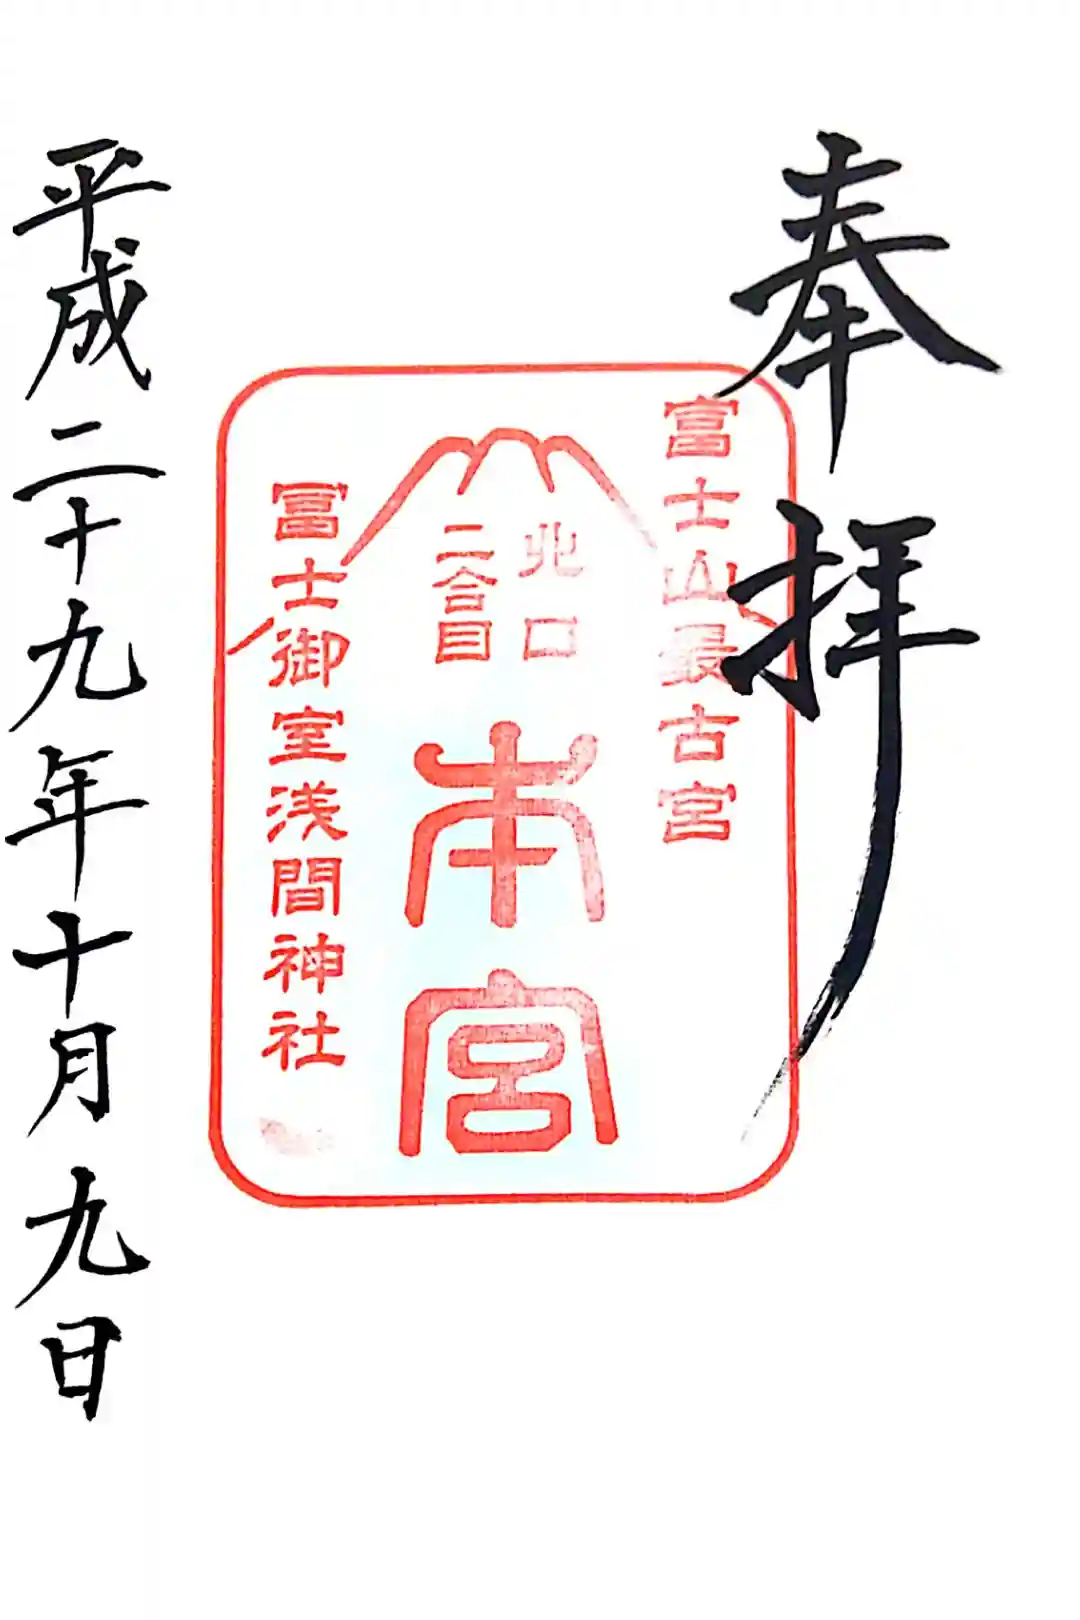 奉拝
富士山最古宮
北口
二合目
本宮
冨士御室浅間神社
平成二十九年十月九日